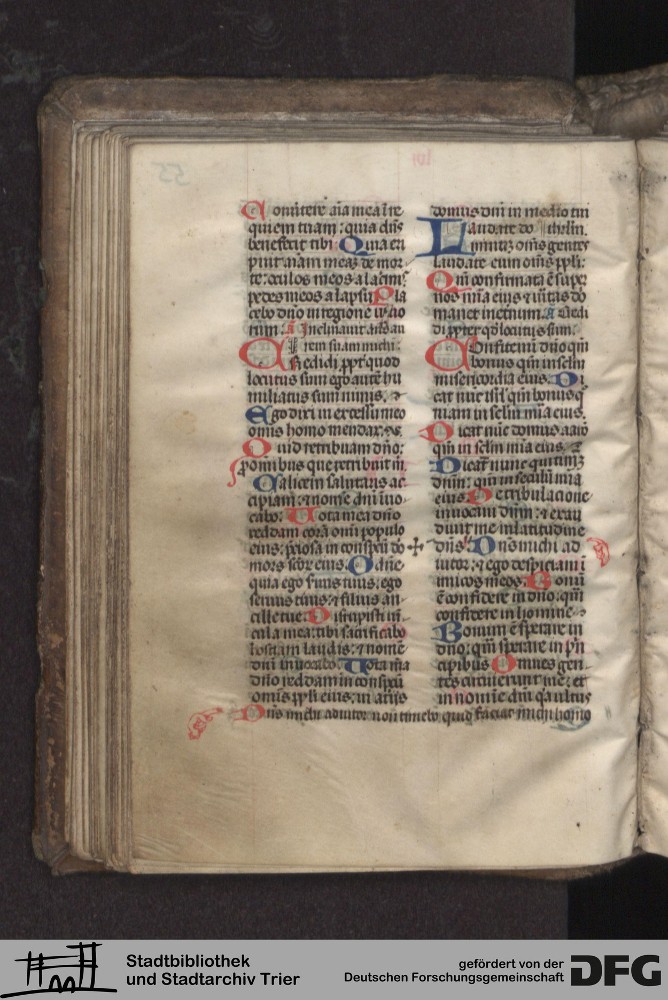 Conũtere aĩa mea ĩ re
quiem tuam: quia dñs
benefecit tibi Quia eri
puit aĩam meaz de mor
te: oculos meos a lacrimˢ
pedes meos a lapsu Pla
cebo dño in regione viuo
rum. a Inclinauit dñs au
rem suam michi.
Credidi ppt' quod
locutus sum ego autẽ hu
miliatus sum nimis.
Ego dixi in excessu meo
omĩs homo mendax.
Quid retribuam dño:
p omnibus que retribuit m̃
Calicem salutaris ac
cipiam: ⁊ nomẽ dñi inuo
cabo. Uota mea dño
reddam corã omĩ populo
eius: p̃ciosa in conspẽu dõ
mors scõr eius. O dñe
quia ego seruus tuus: ego
seruus tuus ⁊ filius an
cille tue. Dirupisti uĩ
cula mea: tibi sacrificabo
hostiam laudis: ⁊ nomẽ
dñi inuocabo. Uota m̃a
dño reddam in conspẽu
omĩs ppli eius: in atrijs
domus dñi in medio tui
ihrl'm.
Laudate do
minũ omĩs gentes
laudate eum omĩs ppli:
Qm̃ confirmata ẽ super
nos mĩa eius ⁊ ũitas dõ
manet in etnum. a Credi
di ppter qd locutus sum.
Confitemini dño qm̃
bonus qm̃ in sclm
misericordia eius. Di
cat nũc isrl' qm̃ bonus q̃
niam in sclm mĩa eius.
Dicat nũc domus aarõ
qm̃ in sclm mĩa eius.
Dicãt nunc qui timẽt
dñm: qm̃ in seculũ mĩa
eius. De tribulacione
inuocaui dñm: ⁊ exau
diuit me in latitudine
dñs. Dñs michi ad
iutor: ⁊ ego despiciam ĩ
imicos meos. Bonũ
ẽ confidere in dño: qm̃
confidere in homine
Bonum ẽ sperare in
dño: qm̃ sperare in p̃n
cipibus Omnes gen
tes circuierunt me: et
in nomĩe dñi q̃a ultus
Dñs michi adiutor non timebo quid faciat michi homo
Stadtbibliothek
und Stadtarchiv Trier
gefördert von der
Deutschen Forschungsgemeinschaft
DFG